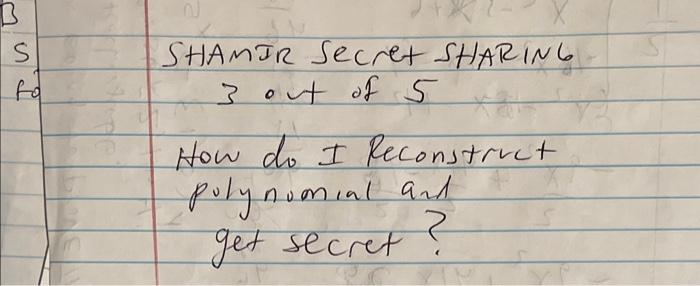 B
S
fo
SHAMIR Secret SHARING
3 out of 5
How do I Reconstruct
polynomial and
get secret?